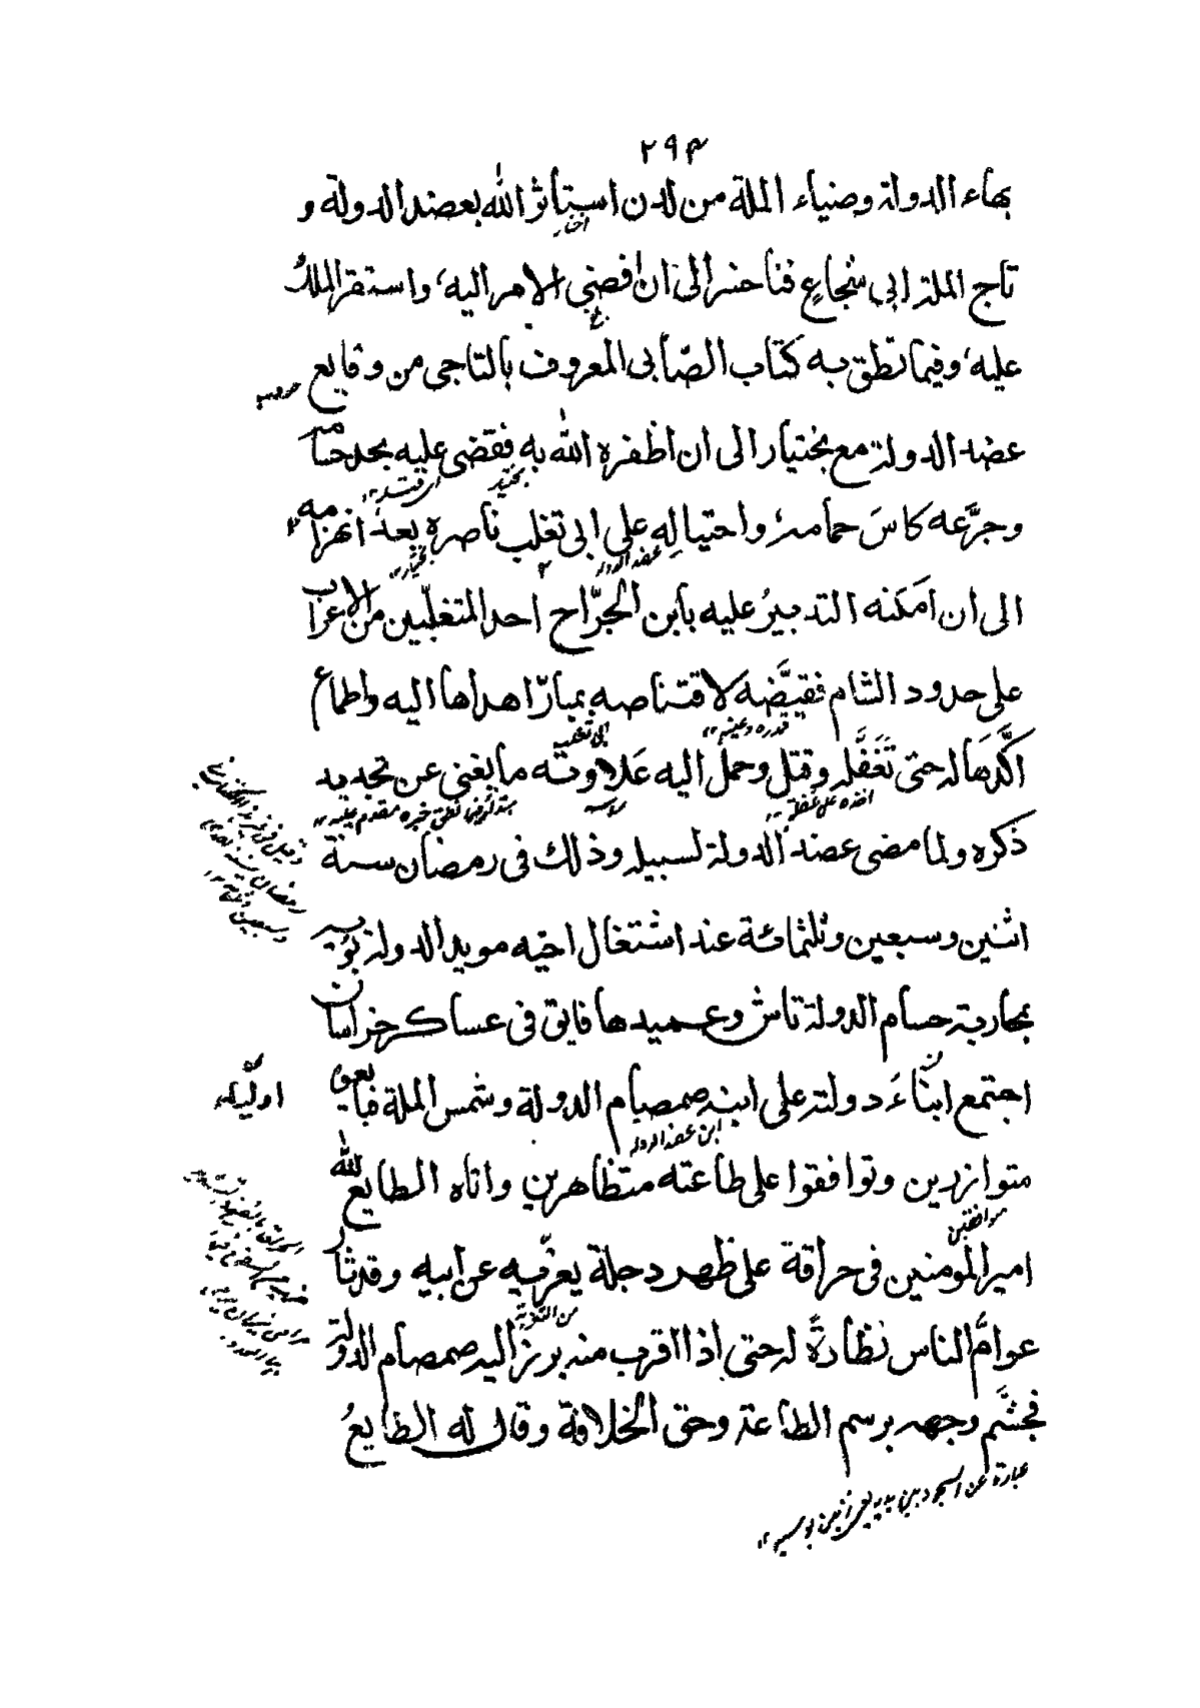 ۲۹۴
بهاء الدولة وضياء الملة من لدن استأثر الله بعضد الدولة و
اختار
تاج الملة ابى شجاع فناخسر الى ان افضى الامر اليه، واستقر الملك
عليه، وفيما نطق به كتاب الصّابى المعروف بالتاجى من وقايع
عضد الدولة مع بختيار الى ان اظفره الله به فقضى عليه بحد حسامه
بختيار
وجرَّعه كاسَ حمامه، واحتيالِه على ابى تغلب ناصره بعد انهزامه
عضد الدولة
بختيار
الى ان امَكنه التدبيرُ عليه بابن الجرّاح احد المتغلّبين من الاعراب
على حدود الشام فقيَّضه لاقتناصه بمبارّ اهداها اليه واطماع
قدره وعينه
ابى تغلب
اكَّدَها له حتى تَغَفَّله وقتله وحمل اليه عَلاوته ما يغنى عن تجديد
اخذه على غفلة
راسه
ذكره ولما مضى عضد الدولة لسبيله وذلك فى رمضان سنة
اثنين وسبعين وثلثمائة عند اشتغال اخيه مويد الدولة بويه
بمحاربة حسام الدولة تاش وعميدها فايق فى عساكر خراسان
اجتمع ابناءَ دولته على ابنه صمصام الدولة وشمس الملة فبايعوه
ابن عضد الدولة
متوازرين وتوافقوا على طاعته متظاهرين واتاه الطايع لله
موافقين
امير المومنين فى حراقة على ظهر دجلة يعزّيه عن ابيه وقد ثار
من التعزية
عوامُّ الناس نظارةً له حتى اذا اقرب منه برز اليه صمصام الدولة
فجشَّم وجهه برسم الطاعة وحق الخلافة وقال له الطايعُ
عبارة عن السجود بين يديه